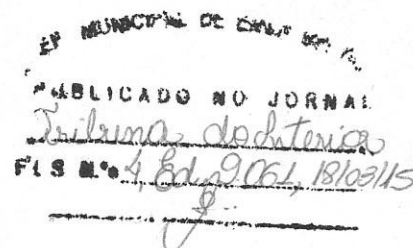 MUNICIPAL DE
PUBLICADO NO JORNAL
Tribuna do Interior
FLS N.º 4 Ed. nº 9.061, 18/03/15